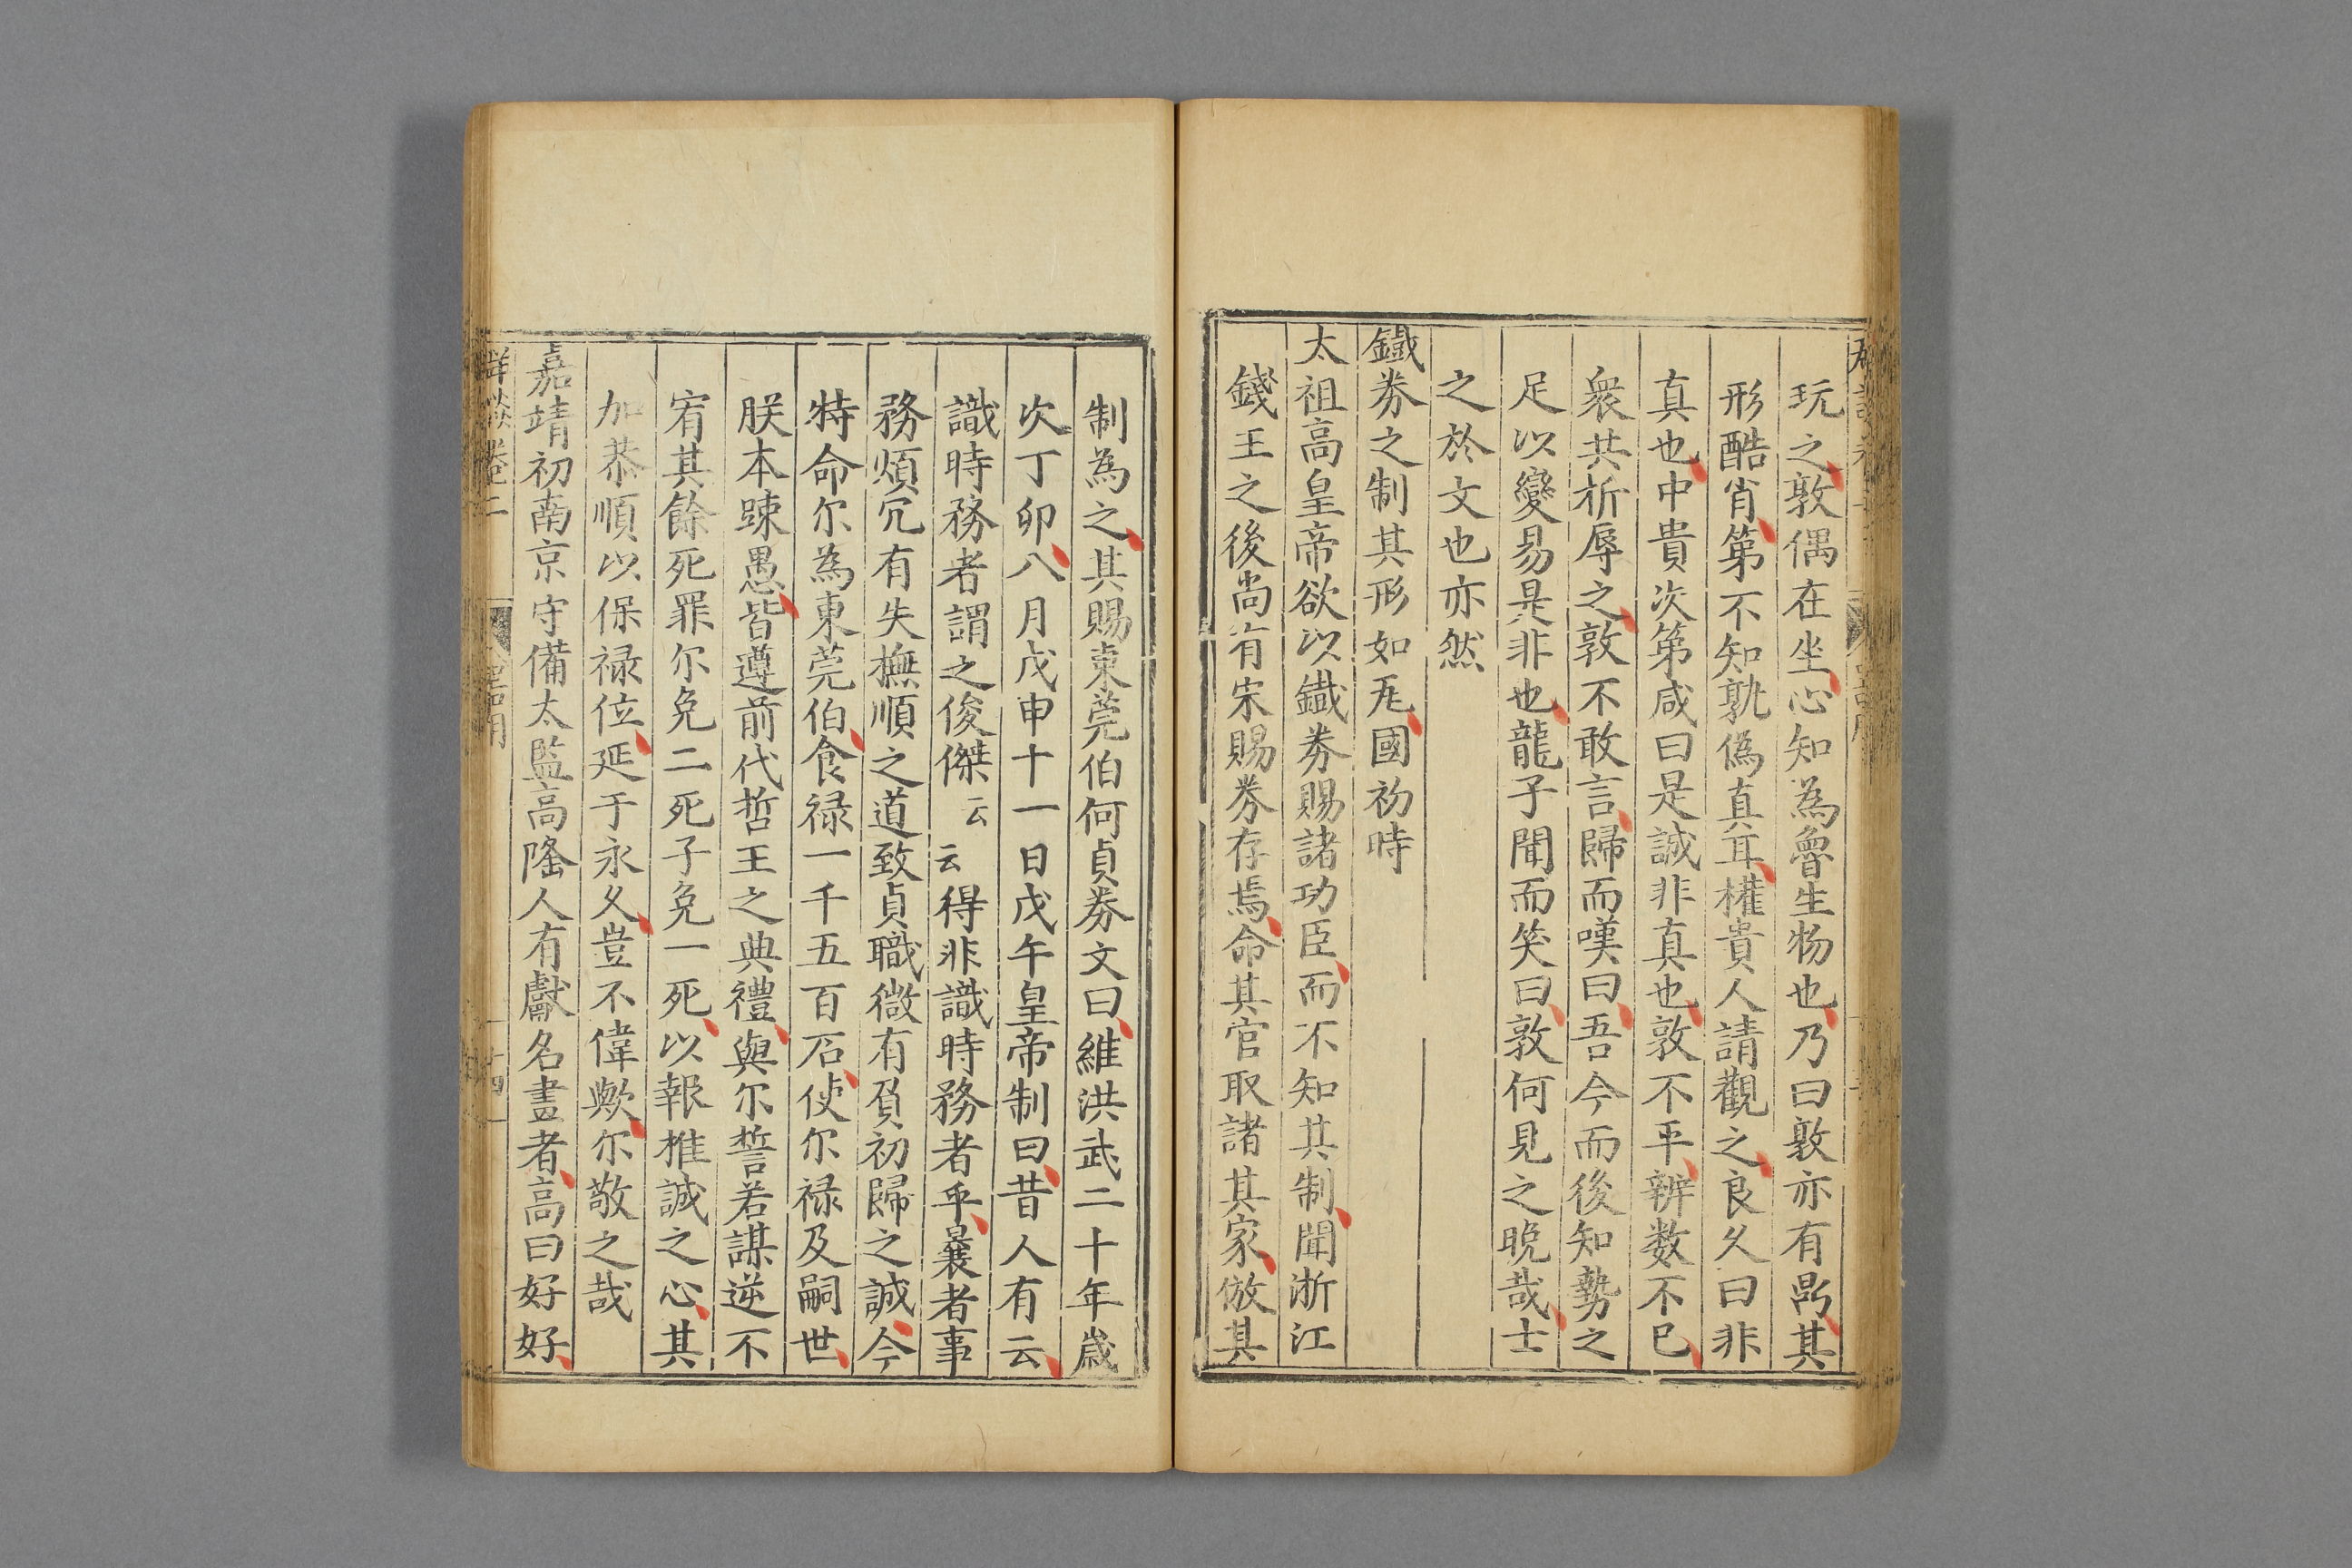 玩之敦偶在坐心知為魯生物也乃曰敦亦有鼎其
形酷肖第不知孰偽真耳權貴人請觀之良久曰非
真也中貴次第咸曰是誠非真也敦不平辨数不已
衆共折辱之敦不敢言歸而嘆曰吾今而後知勢之
足以變易是非也龍子聞而笑曰敦何見之晚哉士
之於文也亦然
鐵券之制其形如瓦國初時
太祖高皇帝欲以鐵券賜諸功臣而不知其制聞浙江
錢王之後尚有宋賜券存焉命其官取諸其家倣其
制為之其賜東莞伯何貞券文曰維洪武二十年歲
次丁卯八月戊申十一日戊午皇帝制曰昔人有云
識時務者謂之俊傑云云得非識時務者乎曩者事
務煩冗有失撫順之道致貞職微有負初歸之誠今
特命尔為東莞伯食禄一千五百石使尔禄及嗣世
朕本踈愚皆遵前代哲王之典禮與尔誓若謀逆不
宥其餘死罪尔免二死子免一死以報推誠之心其
加恭順以保禄位延于永久豈不偉歟尔敬之哉
嘉靖初南京守備太監高隆人有獻名畫者高曰好好
群談卷二
十四